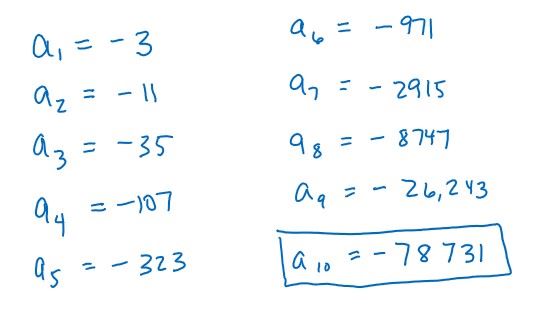 a₁ = -3
a₂ = -11
a₃ = -35
a₄ = -107
a₅ = -323
a₆ = -971
a₇ = -2915
a₈ = -8747
a₉ = -26,243
a₁₀ = -78 731